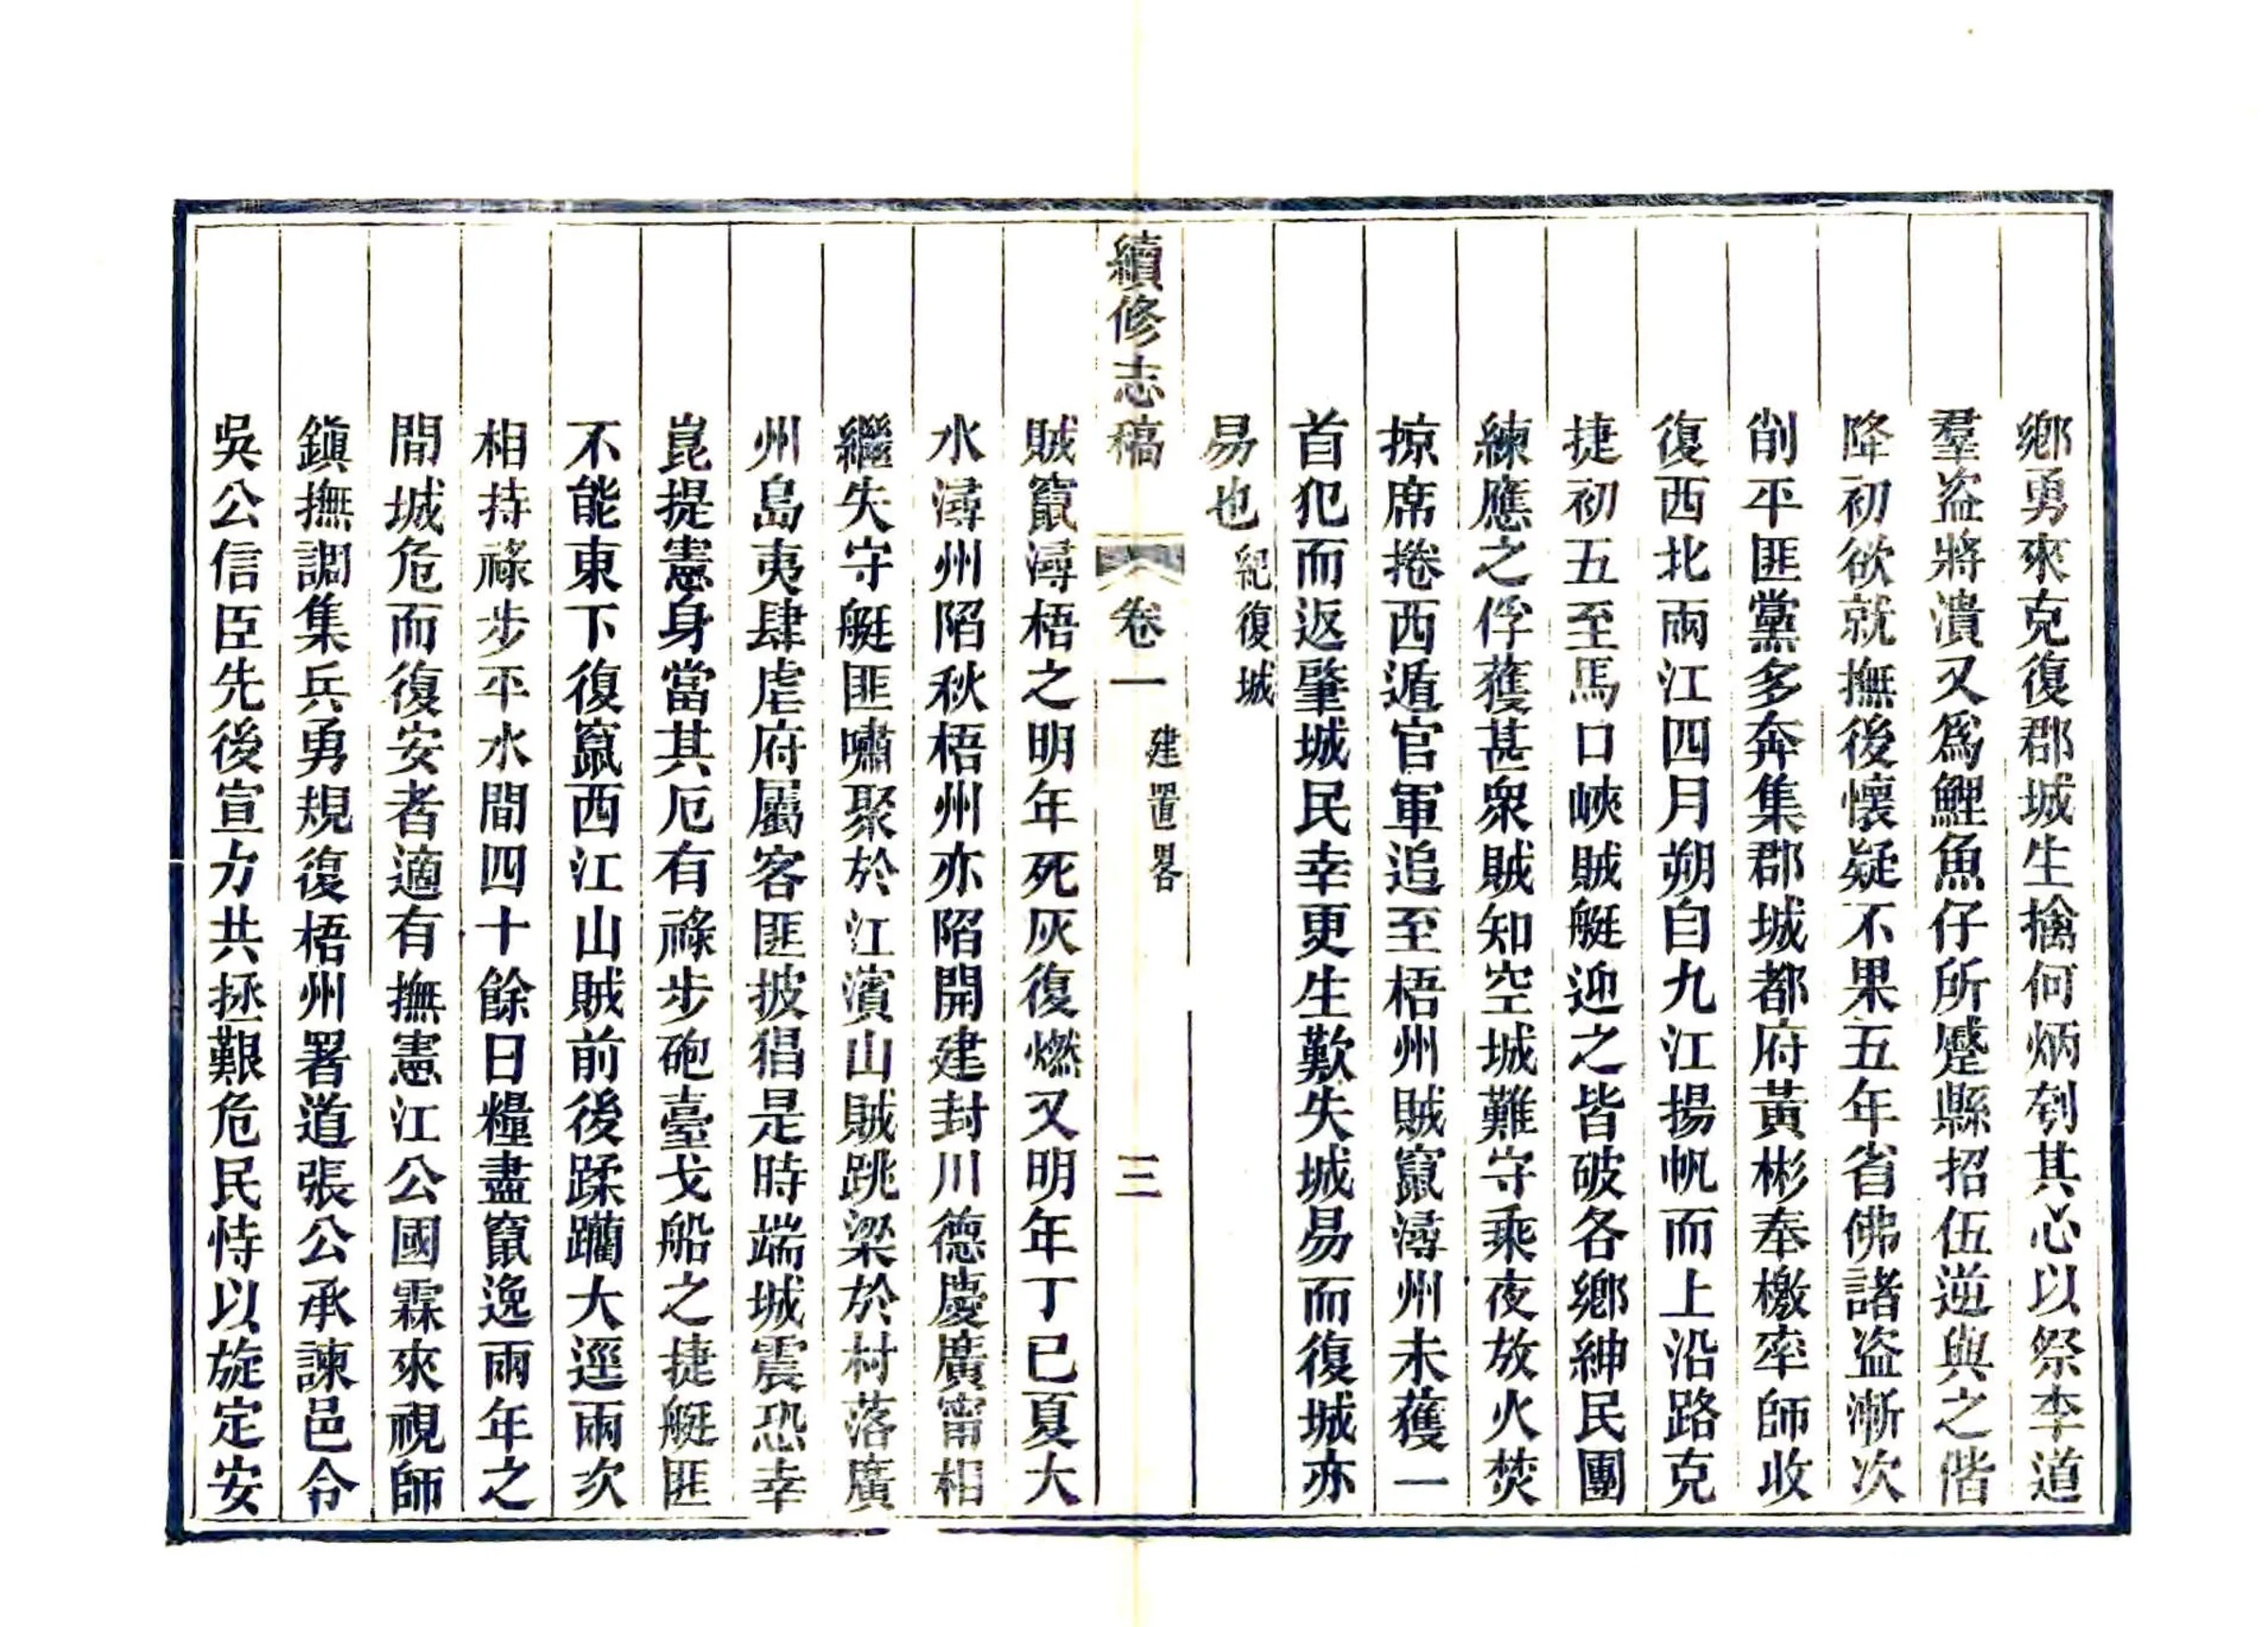 鄉勇來克復郡城生擒何炳刳其心以祭李道
羣盜將潰又爲鯉魚仔所蹙縣招伍逆與之偕
降初欲就撫後懷疑不果五年省佛諸盜漸次
削平匪黨多奔集郡城都府黃彬奉檄率師收
復西北兩江四月朔自九江揚帆而上沿路克
捷初五至馬口峽賊艇迎之皆破各鄉紳民團
練應之俘獲甚衆賊知空城難守乘夜放火焚
掠席捲西遁官軍追至梧州賊竄潯州未獲一
首犯而返肇城民幸更生歎失城易而復城亦
易也紀復城
續修志稿 卷一 建置畧 三
賊竄潯梧之明年死灰復燃又明年丁巳夏大
水潯州陷秋梧州亦陷開建封川德慶廣甯相
繼失守艇匪嘯聚於江濱山賊跳梁於村落廣
州島夷肆虐府屬客匪披猖是時端城震恐幸
崑提憲身當其厄有祿步砲臺戈船之捷艇匪
不能東下復竄西江山賊前後蹂躪大逕兩次
相持祿步平水間四十餘日糧盡竄逸兩年之
間城危而復安者適有撫憲江公國霖來視師
鎭撫調集兵勇規復梧州署道張公承諫邑令
吳公信臣先後宣力共拯艱危民恃以旋定安